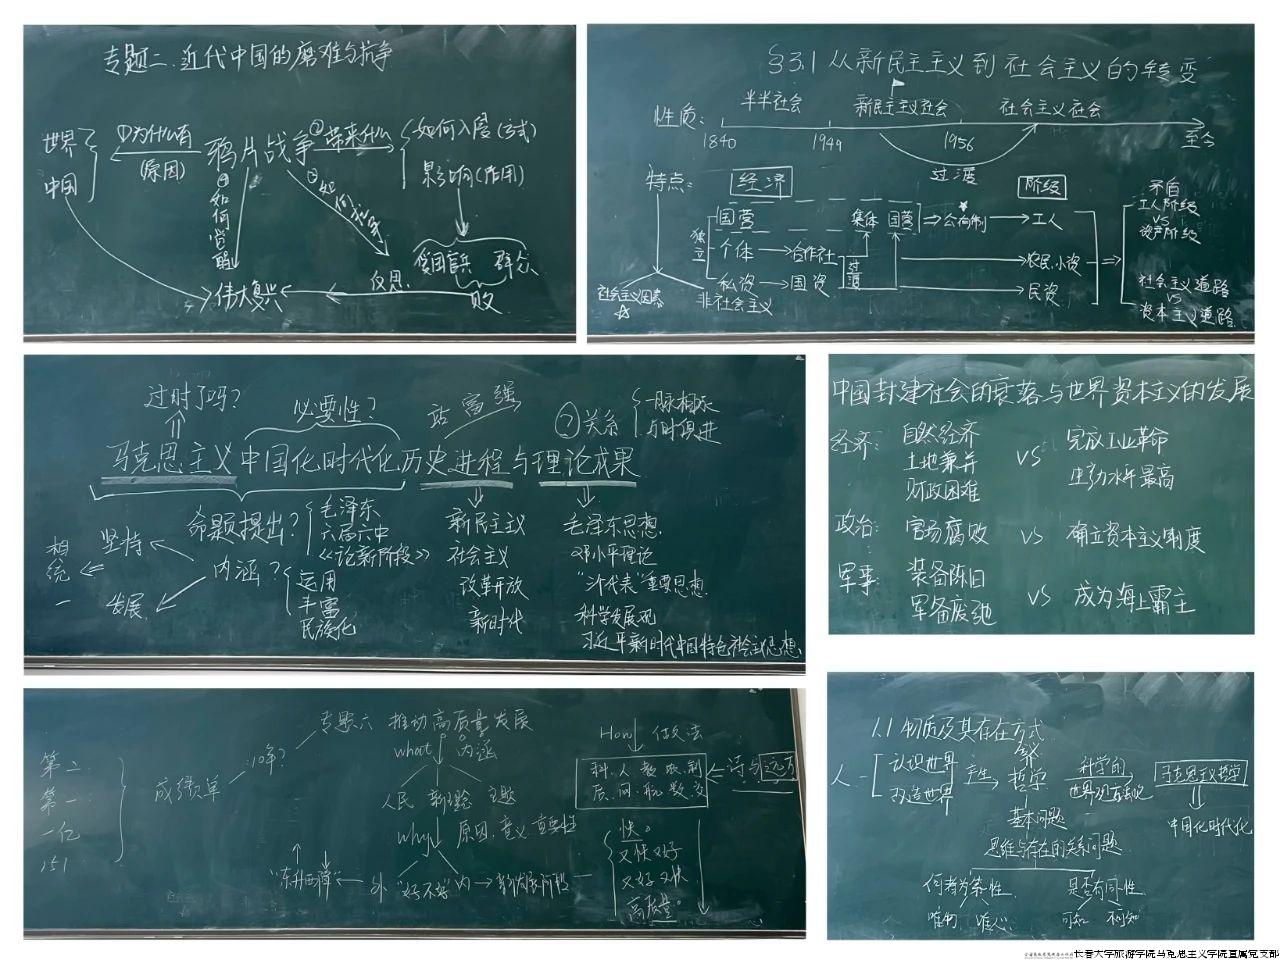 专题二、近代中国的磨难与抗争
世界
中国
①为什么有
(原因)
鸦片战争
②带来什么
如何入侵(方式)
影响(作用)
③如何抗争
④如何觉醒
爱国官兵
群众
伟大复兴
反思
败
§3.1从新民主主义到社会主义的转变
性质:
半半社会
新民主主义社会
社会主义社会
1840
1949
1956
至今
过渡
特点:
经济
阶级
国营
集体
国营
公有制
工人
独立
个体
合作社
过渡
农民.小资
私资
国资
民资
社会主义因素
非社会主义
矛盾
工人阶级
VS
资产阶级
社会主义道路
VS
资本主义道路
过时了吗?
必要性?
站 富 强
?关系
一脉相承
与时俱进
马克思主义中国化时代化历史进程与理论成果
命题提出?
毛泽东
六届六中
《论新阶段》
相统一
坚持
发展
内涵?
运用
丰富
民族化
新民主主义
社会主义
改革开放
新时代
毛泽东思想
邓小平理论
“三个代表”重要思想
科学发展观
习近平新时代中国特色社会主义思想
中国封建社会的衰落与世界资本主义的发展
经济:
自然经济
土地兼并
财政困难
VS
完成工业革命
生产力水平最高
政治:
官场腐败
VS
确立资本主义制度
军事:
装备陈旧
军备废弛
VS
成为海上霸主
专题六 推动高质量发展
第二
第一
一亿
151
成绩单
10年?
what
内涵
人民 新理念 主题
Why
原因.意义 重要性
“东升西降”
外
“好不好”
内
新发展阶段
How
做法
诗与远方
快。
又快又好
又好又快
高质量。
1.1 物质及其存在方式
人
认识世界
改造世界
产生
哲学
科学的
世界观方法论
马克思主义哲学
中国化时代化
基本问题
思维与存在的关系问题
何者为第一性
是否有同一性
唯物
唯心
可知
不可知
长春大学旅游学院马克思主义学院直属党支部